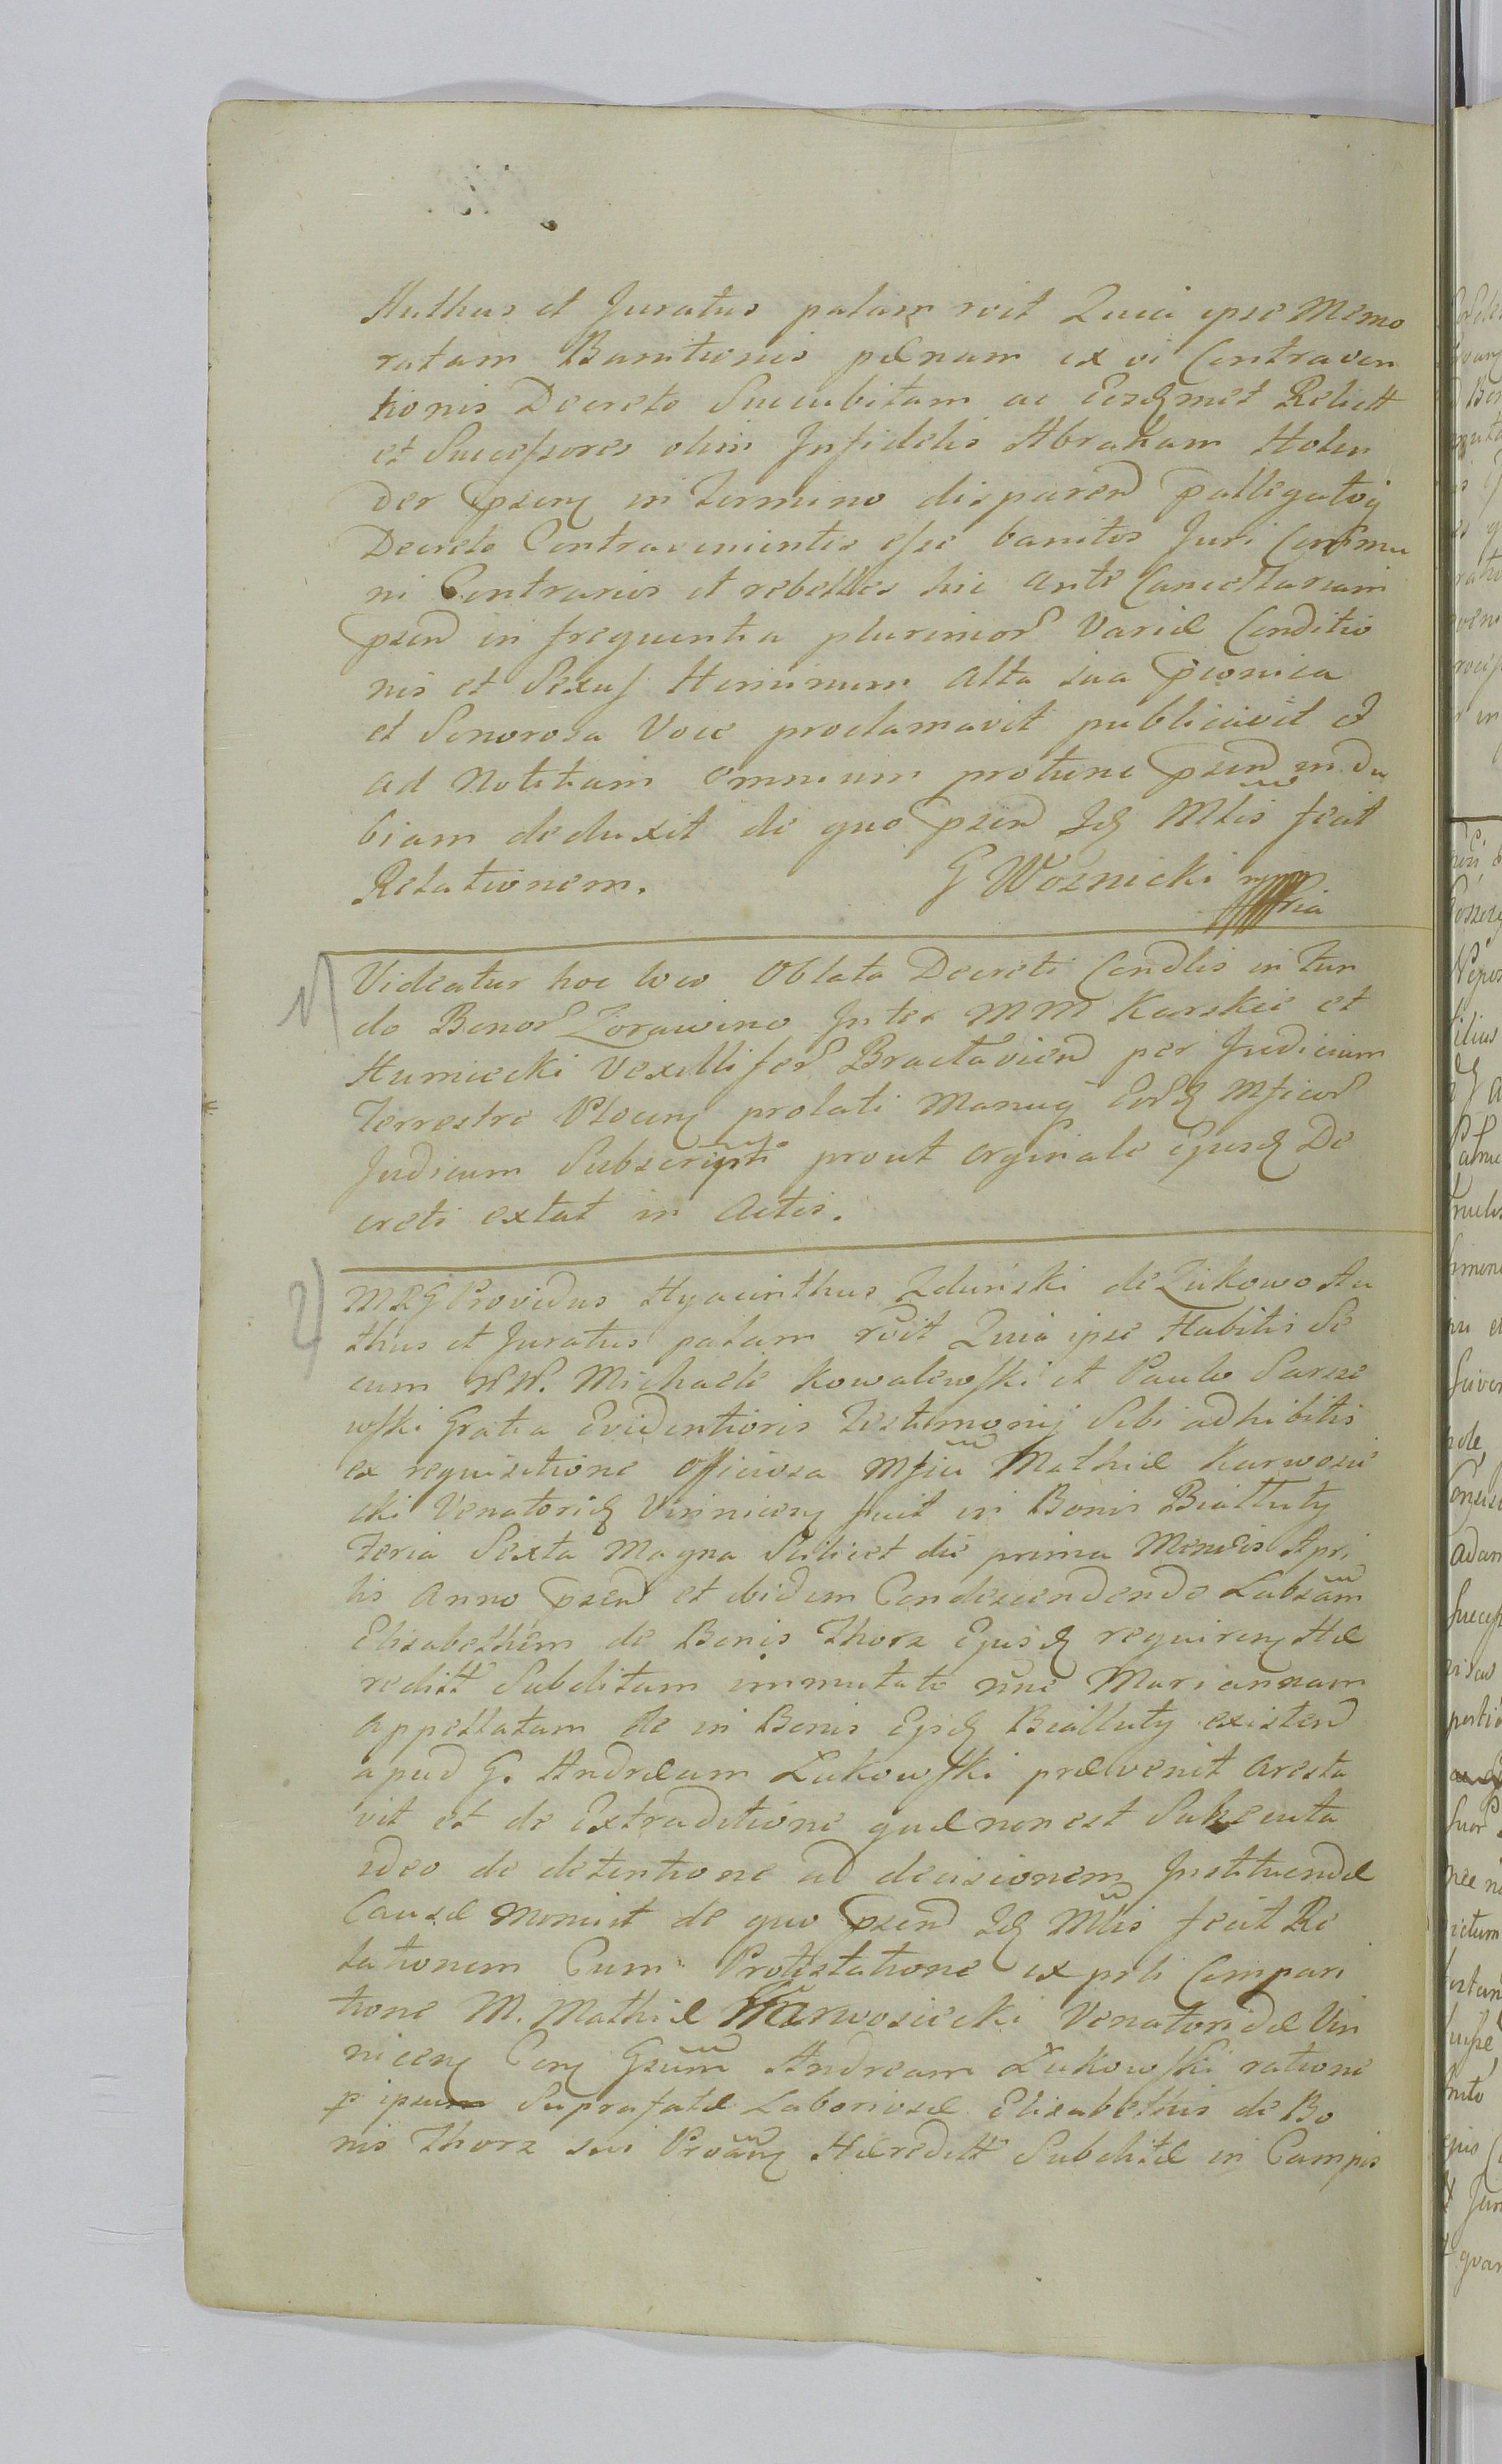 Authus et Juratus palam rcit Quia ipse Memo
ratam Banitionis pænam ex vi Contraven
tionis Decreto Succubitam ac Eosdmet Relictt
et Successores olim Infidelis Abraham Holen
der psen in Termino disparend pallegatoq
Decreto Contravenientes esse banitos Juri Commu
ni Contrarios et rebelles hic ante Cancellariam
psen in frequentia plurimor Variæ Conditio
nis et Sexus Hominum alta sua pconica
et Sonorosa Voce proclamavit publicavit et
ad Notitiam omnium protunc psen indu
biam deduxit de quo psen Idq Mlis fecit
Relationem. G Woznicki mpp
1) Videatur hoc loco Oblata Decreti Condlis in fun
do Bonor Zorawino Inter MM Karskie et
Humiecki Vexillifer Bractavien per Judicium
Terrestre Plocen prolati Manuq Eord Mficor
Judicum Subscripti prout orginale Ejusd De
creti extat in Actis.
2) MRG Providus Hyacinthus Zdunski de Zukowo Au
thus et Juratus palam rcit Quia ipse Habitis Se
cum NN. Michaele Kowalewski et Paulo Sarze
wski Gratia Evidentioris Testimonij Sibi adhibitis
ex requisitione officiosa Mfici Mathiæ Karwosie
cki Venatorid Winnicen fuit in Bonis Bialluty
Feria Sexta Magna Scilicet die prima Mensis Apri
lis Anno psen et ibidem Condescendendo Labsam
Elisabethem de Bonis Thorz Ejusd requiren Hæ
reditt Subditam immutato nne Mariannam
appellatam de in Bonis Ejsd Bialluty existen
apud G. Andræam Zukowski prævenit aresta
vit et de Extraditione quæ non est Subsecuta
ideo de detentione ad decisionem Instituendæ
Causæ monuit de quo psen Idq Mlis fecit Re
lationem Cum Protestatione ex prli Compari
tione M. Mathiæ Karwosiecki Venatoridæ Vin
nicen Con Gsum Andream Zukowski ratione
p ipsum Suprafatæ Laboriosæ Elisabethis de Bo
nis Thorz sui Proan Hæreditt Subditæ in Campis